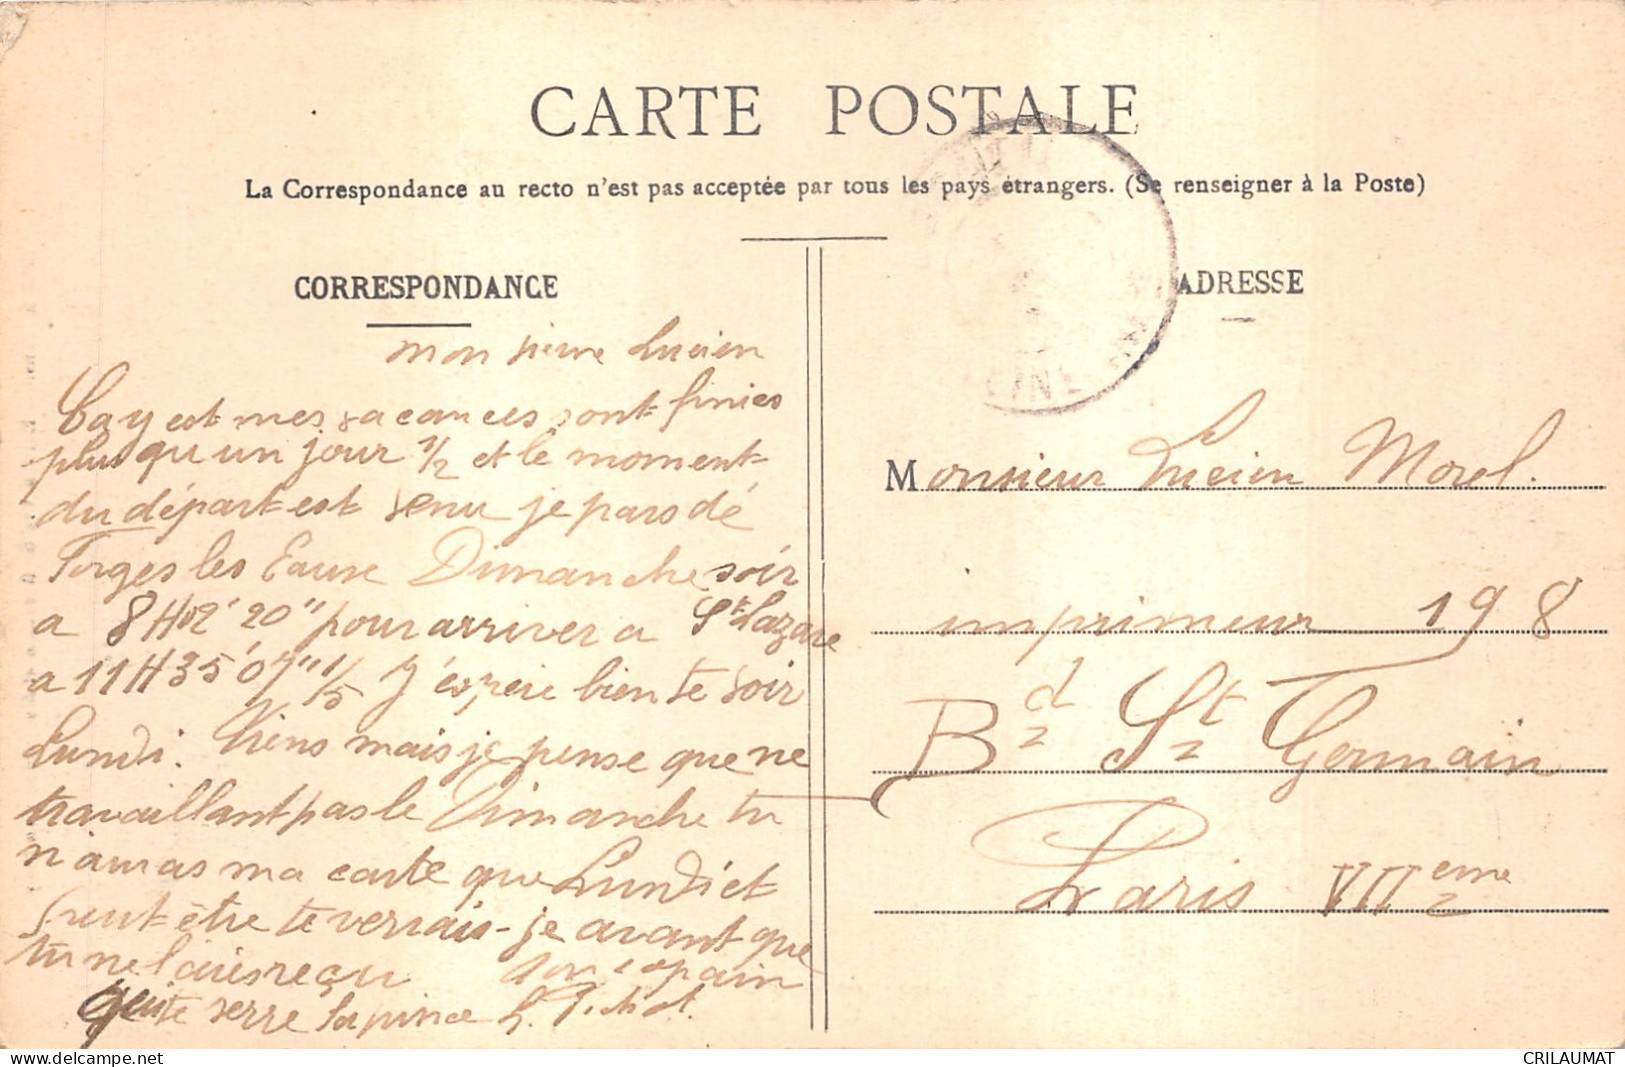 CARTE POSTALE
La Correspondance au recto n'est pas acceptée par tous les pays étrangers. (Se renseigner à la Poste)
CORRESPONDANCE
mon vieux Lucien
Cay est mes vacances sont finies
plus qu'un jour 1/2 et le moment
du départ est venu je pars dé
Forges les Eaux Dimanche soir
a 8H02'20" pour arriver a St Lazare
a 11H35'07"1/5 J'éspère bien te voir
Lundi. Viens mais je pense que ne
travaillant pas le Dimanche tu
n'auras ma carte que Lundi et
peut-être te verrais-je avant que
tu ne l'aies reçu ton copain
qui te serre la pince
ADRESSE
Monsieur Lucien Morel.
imprimeur 198
Bd St Germain
Paris VIIeme
INE
delcampe.net
CRILAUMAT